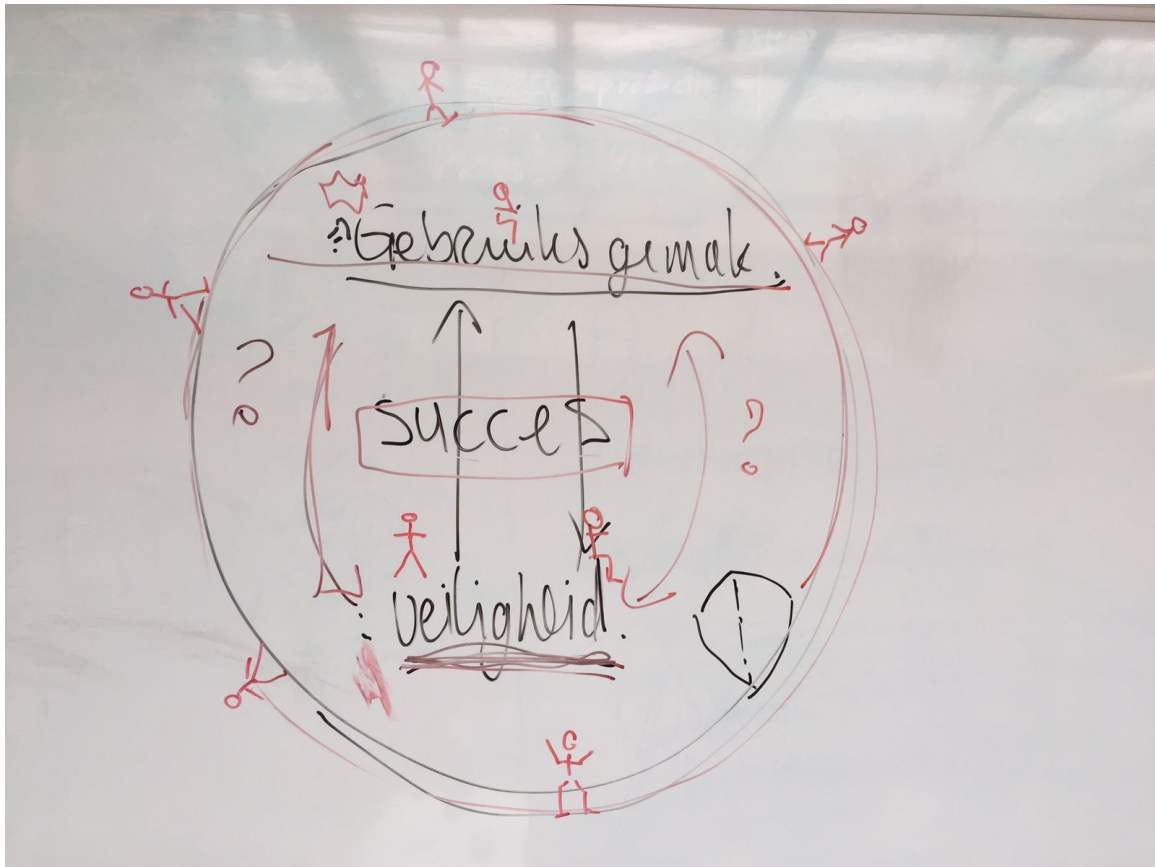 Gebruiksgemak.
? succes ?
veiligheid.